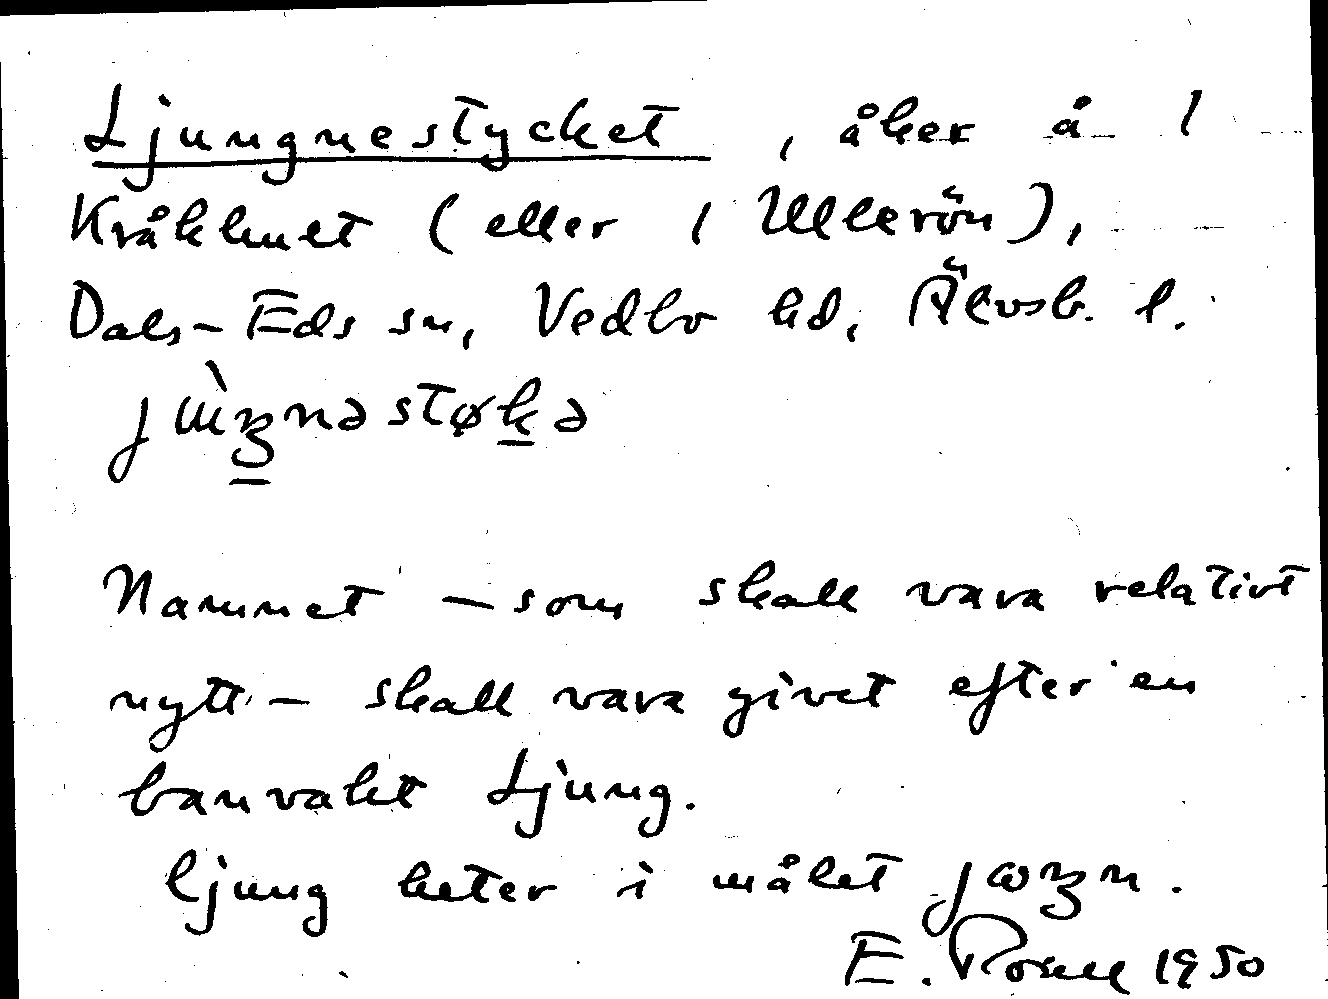 Ljungnestycket, åker å 1
Kråkhult (eller 1 Ullerön),
Dals-Eds sn, Vedbo hd, Älvsb. l.
Namnet – som skall vara relativt
nytt – skall vara givet efter en
banvakt Ljung.
ljung heter i målet
E. 1950